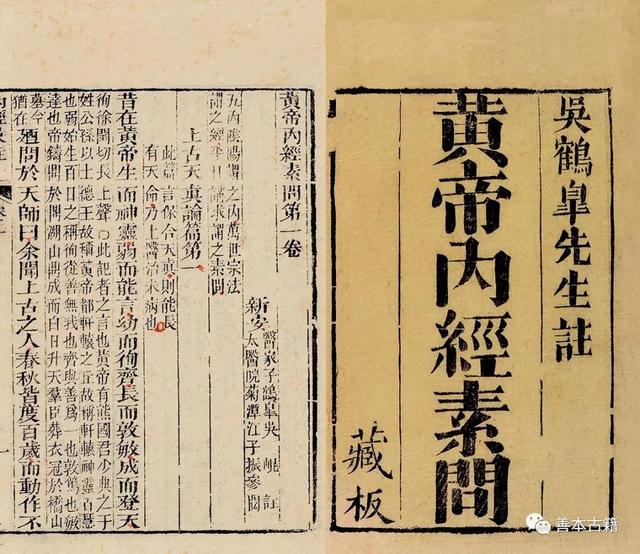 吳鶴臯先生註
黃帝內經素問
藏板
黃帝內經素問第一卷
新安醫家子鶴臯吳崐註
太醫院菊潭江子振參閱
五內陰陽謂之內萬世宗法
謂之經平日講求謂之素問
上古天真論篇第一
此篇言保合天真則能長
有天命乃上醫治未病也
昔在黃帝生而神靈弱而能言幼而徇齊長而敦敏成而登天
徇徐閏切長上聲〇此記者之言也黃帝有熊國君少典之子
姓公孫以土德王故稱黃帝都軒轅之丘故稱軒轅神靈百慧
也弱始生百日之稱徇從善無我也齊與善爲一也敦篤也敏
達也帝鑄鼎於鼎湖山鼎成而白日升天羣臣葬衣冠於橋山
墓今猶在
廼問於天師曰余聞上古之人春秋皆度百歲而動作不
善本古籍